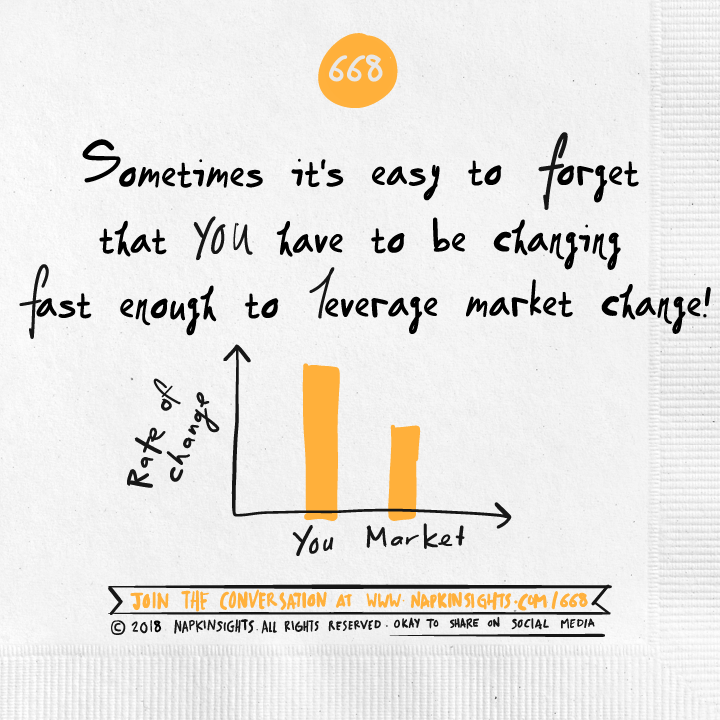 668
Sometimes it's easy to forget
that YOU have to be changing
fast enough to leverage market change!
Rate of
change
You Market
JOIN THE CONVERSATION AT WWW.NAPKINSIGHTS.COM/668
© 2018 NAPKINSIGHTS. ALL RIGHTS RESERVED. OKAY TO SHARE ON SOCIAL MEDIA